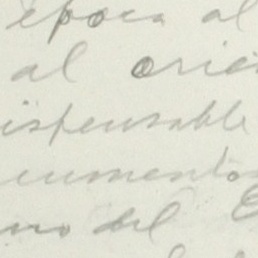 epoca al
al orien
ispensable
umentos
no del